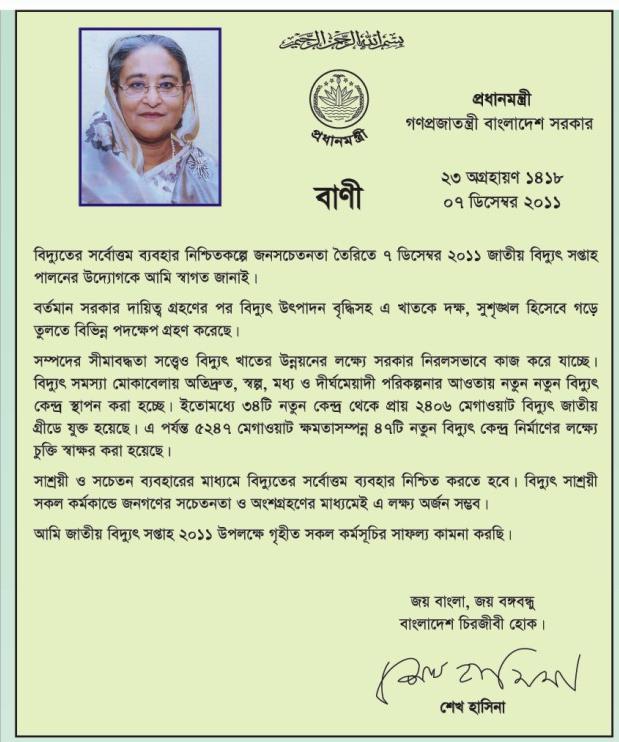 بسم الله الرحمن الرحيم
প্রধানমন্ত্রী
প্রধানমন্ত্রী
গণপ্রজাতন্ত্রী বাংলাদেশ সরকার
বাণী
২৩ অগ্রহায়ণ ১৪১৮
০৭ ডিসেম্বর ২০১১
বিদ্যুতের সর্বোত্তম ব্যবহার নিশ্চিতকল্পে জনসচেতনতা তৈরিতে ৭ ডিসেম্বর ২০১১ জাতীয় বিদ্যুৎ সপ্তাহ
পালনের উদ্যোগকে আমি স্বাগত জানাই।
বর্তমান সরকার দায়িত্ব গ্রহণের পর বিদ্যুৎ উৎপাদন বৃদ্ধিসহ এ খাতকে দক্ষ, সুশৃঙ্খল হিসেবে গড়ে
তুলতে বিভিন্ন পদক্ষেপ গ্রহণ করেছে।
সম্পদের সীমাবদ্ধতা সত্ত্বেও বিদ্যুৎ খাতের উন্নয়নের লক্ষ্যে সরকার নিরলসভাবে কাজ করে যাচ্ছে।
বিদ্যুৎ সমস্যা মোকাবেলায় অতিদ্রুত, স্বল্প, মধ্য ও দীর্ঘমেয়াদী পরিকল্পনার আওতায় নতুন নতুন বিদ্যুৎ
কেন্দ্র স্থাপন করা হচ্ছে। ইতোমধ্যে ৩৪টি নতুন কেন্দ্র থেকে প্রায় ২৪০৬ মেগাওয়াট বিদ্যুৎ জাতীয়
গ্রীডে যুক্ত হয়েছে। এ পর্যন্ত ৫২৪৭ মেগাওয়াট ক্ষমতাসম্পন্ন ৪৭টি নতুন বিদ্যুৎ কেন্দ্র নির্মাণের লক্ষ্যে
চুক্তি স্বাক্ষর করা হয়েছে।
সাশ্রয়ী ও সচেতন ব্যবহারের মাধ্যমে বিদ্যুতের সর্বোত্তম ব্যবহার নিশ্চিত করতে হবে। বিদ্যুৎ সাশ্রয়ী
সকল কর্মকান্ডে জনগণের সচেতনতা ও অংশগ্রহণের মাধ্যমেই এ লক্ষ্য অর্জন সম্ভব।
আমি জাতীয় বিদ্যুৎ সপ্তাহ ২০১১ উপলক্ষে গৃহীত সকল কর্মসূচির সাফল্য কামনা করছি।
জয় বাংলা, জয় বঙ্গবন্ধু
বাংলাদেশ চিরজীবী হোক।
শেখ হাসিনা
শেখ হাসিনা